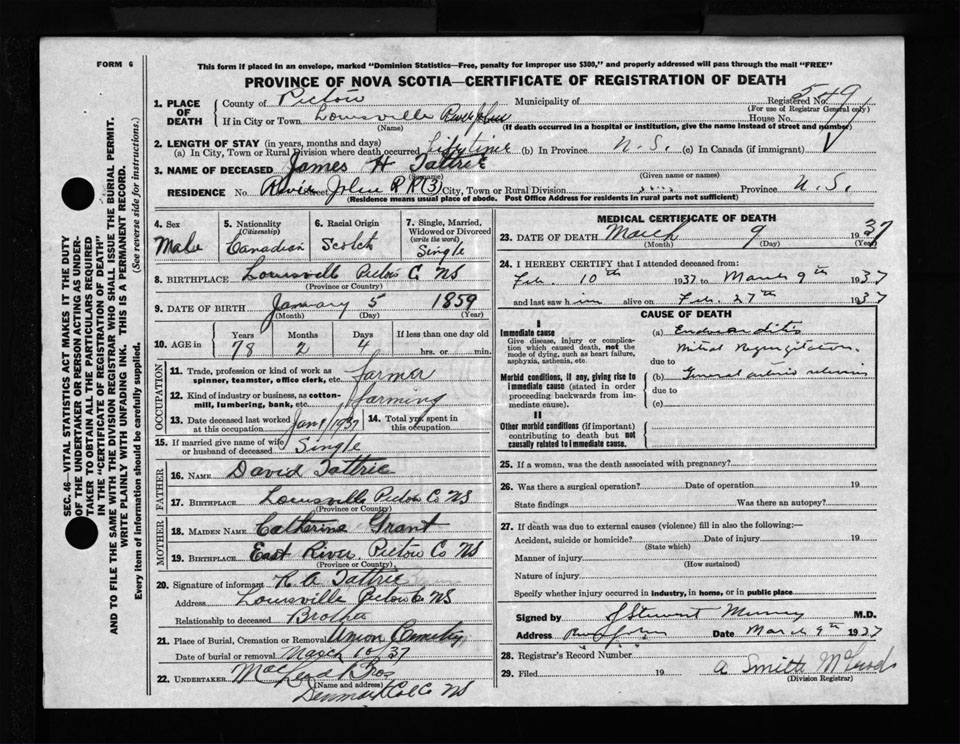 FORM 6
This form if placed in an envelope, marked "Dominion Statistics—Free, penalty for improper use $300," and properly addressed will pass through the mail "FREE"
PROVINCE OF NOVA SCOTIA—CERTIFICATE OF REGISTRATION OF DEATH
1. PLACE OF DEATH
County of Pictou Municipality of Registered No. 549
(For use of Registrar General only)
If in City or Town Louisville River John House No.
(Name) (If death occurred in a hospital or institution, give the name instead of street and number)
2. LENGTH OF STAY (in years, months and days)
(a) In City, Town or Rural Division where death occurred Life time (b) In Province N.S. (c) In Canada (if immigrant)
3. NAME OF DECEASED James H Tattrie
(Surname) (Given name or names)
RESIDENCE No. River John RR(3) City, Town or Rural Division Province N.S.
(Residence means usual place of abode. Post Office Address for residents in rural parts not sufficient)
4. Sex Male
5. Nationality (Citizenship) Canadian
6. Racial Origin Scotch
7. Single, Married, Widowed or Divorced (write the word) Single
8. BIRTHPLACE Louisville Pictou C. NS
(Province or Country)
9. DATE OF BIRTH January 5 1859
(Month) (Day) (Year)
10. AGE in Years Months Days If less than one day old
78 2 4 hrs. or min.
OCCUPATION
11. Trade, profession or kind of work as spinner, teamster, office clerk, etc. farmer
12. Kind of industry or business, as cotton-mill, lumbering, bank, etc. farming
13. Date deceased last worked at this occupation Jan 1/1937 14. Total yrs. spent in this occupation
15. If married give name of wife or husband of deceased Single
FATHER
16. NAME David Tattrie
17. BIRTHPLACE Louisville Pictou Co NS
(Province or Country)
MOTHER
18. MAIDEN NAME Catherine Grant
19. BIRTHPLACE East River Pictou Co NS
(Province or Country)
20. Signature of informant R. A. Tattrie
Address Louisville Pictou Co NS
Relationship to deceased Brother
21. Place of Burial, Cremation or Removal Union Cemetery
Date of burial or removal March 10/37
22. UNDERTAKER MacLean Bros
(Name and address)
Denmark Col. Co NS
MEDICAL CERTIFICATE OF DEATH
23. DATE OF DEATH March 9 1937
(Month) (Day) (Year)
24. I HEREBY CERTIFY that I attended deceased from:
Feb. 10th 1937 to March 9th 1937
and last saw him alive on Feb. 27th 1937
CAUSE OF DEATH
I
Immediate cause
Give disease, injury or complication which caused death, not the mode of dying, such as heart failure, asphyxia, asthenia, etc.
(a) Endocarditis
Mitral Regurgitation
due to
Morbid conditions, if any, giving rise to immediate cause (stated in order proceeding backwards from immediate cause).
(b) General arterio sclerosis
due to
(c)
II
Other morbid conditions (if important) contributing to death but not causally related to immediate cause.
25. If a woman, was the death associated with pregnancy?
26. Was there a surgical operation? Date of operation 19
State findings Was there an autopsy?
27. If death was due to external causes (violence) fill in also the following:—
Accident, suicide or homicide? Date of injury 19
(State which)
Manner of injury
(How sustained)
Nature of injury
Specify whether injury occurred in industry, in home, or in public place
Signed by J Stewart Murray M.D.
Address River John Date March 9th 1937
28. Registrar's Record Number
29. Filed 19 A Smith McLeod
(Division Registrar)
SEC. 46—VITAL STATISTICS ACT MAKES IT THE DUTY
OF THE UNDERTAKER OR PERSON ACTING AS UNDER-
TAKER TO OBTAIN ALL THE PARTICULARS REQUIRED
IN THE "CERTIFICATE OF REGISTRATION OF DEATH"
AND TO FILE THE SAME WITH THE DIVISION REGISTRAR WHO SHALL ISSUE THE BURIAL PERMIT.
WRITE PLAINLY WITH UNFADING INK. THIS IS A PERMANENT RECORD.
Every item of information should be carefully supplied. (See reverse side for instructions.)